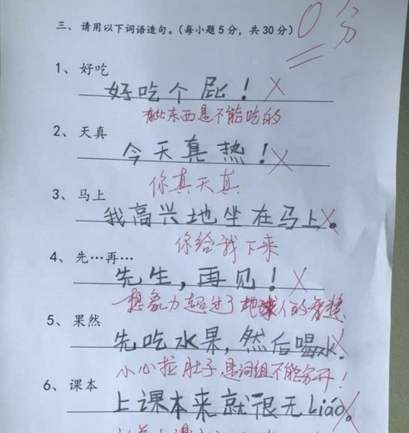 三、请用以下词语造句。(每小题5分，共30分)
0分
1、好吃
好吃个屁！
有些东西是不能吃的
2、天真
今天真热！
你真天真
3、马上
我高兴地坐在马上。
你给我下来
4、先…再…
先生，再见！
想象力超过了地球人的智慧
5、果然
先吃水果，然后喝水。
小心拉肚子，是词组不能分开！
6、课本
上课本来就很无liáo。